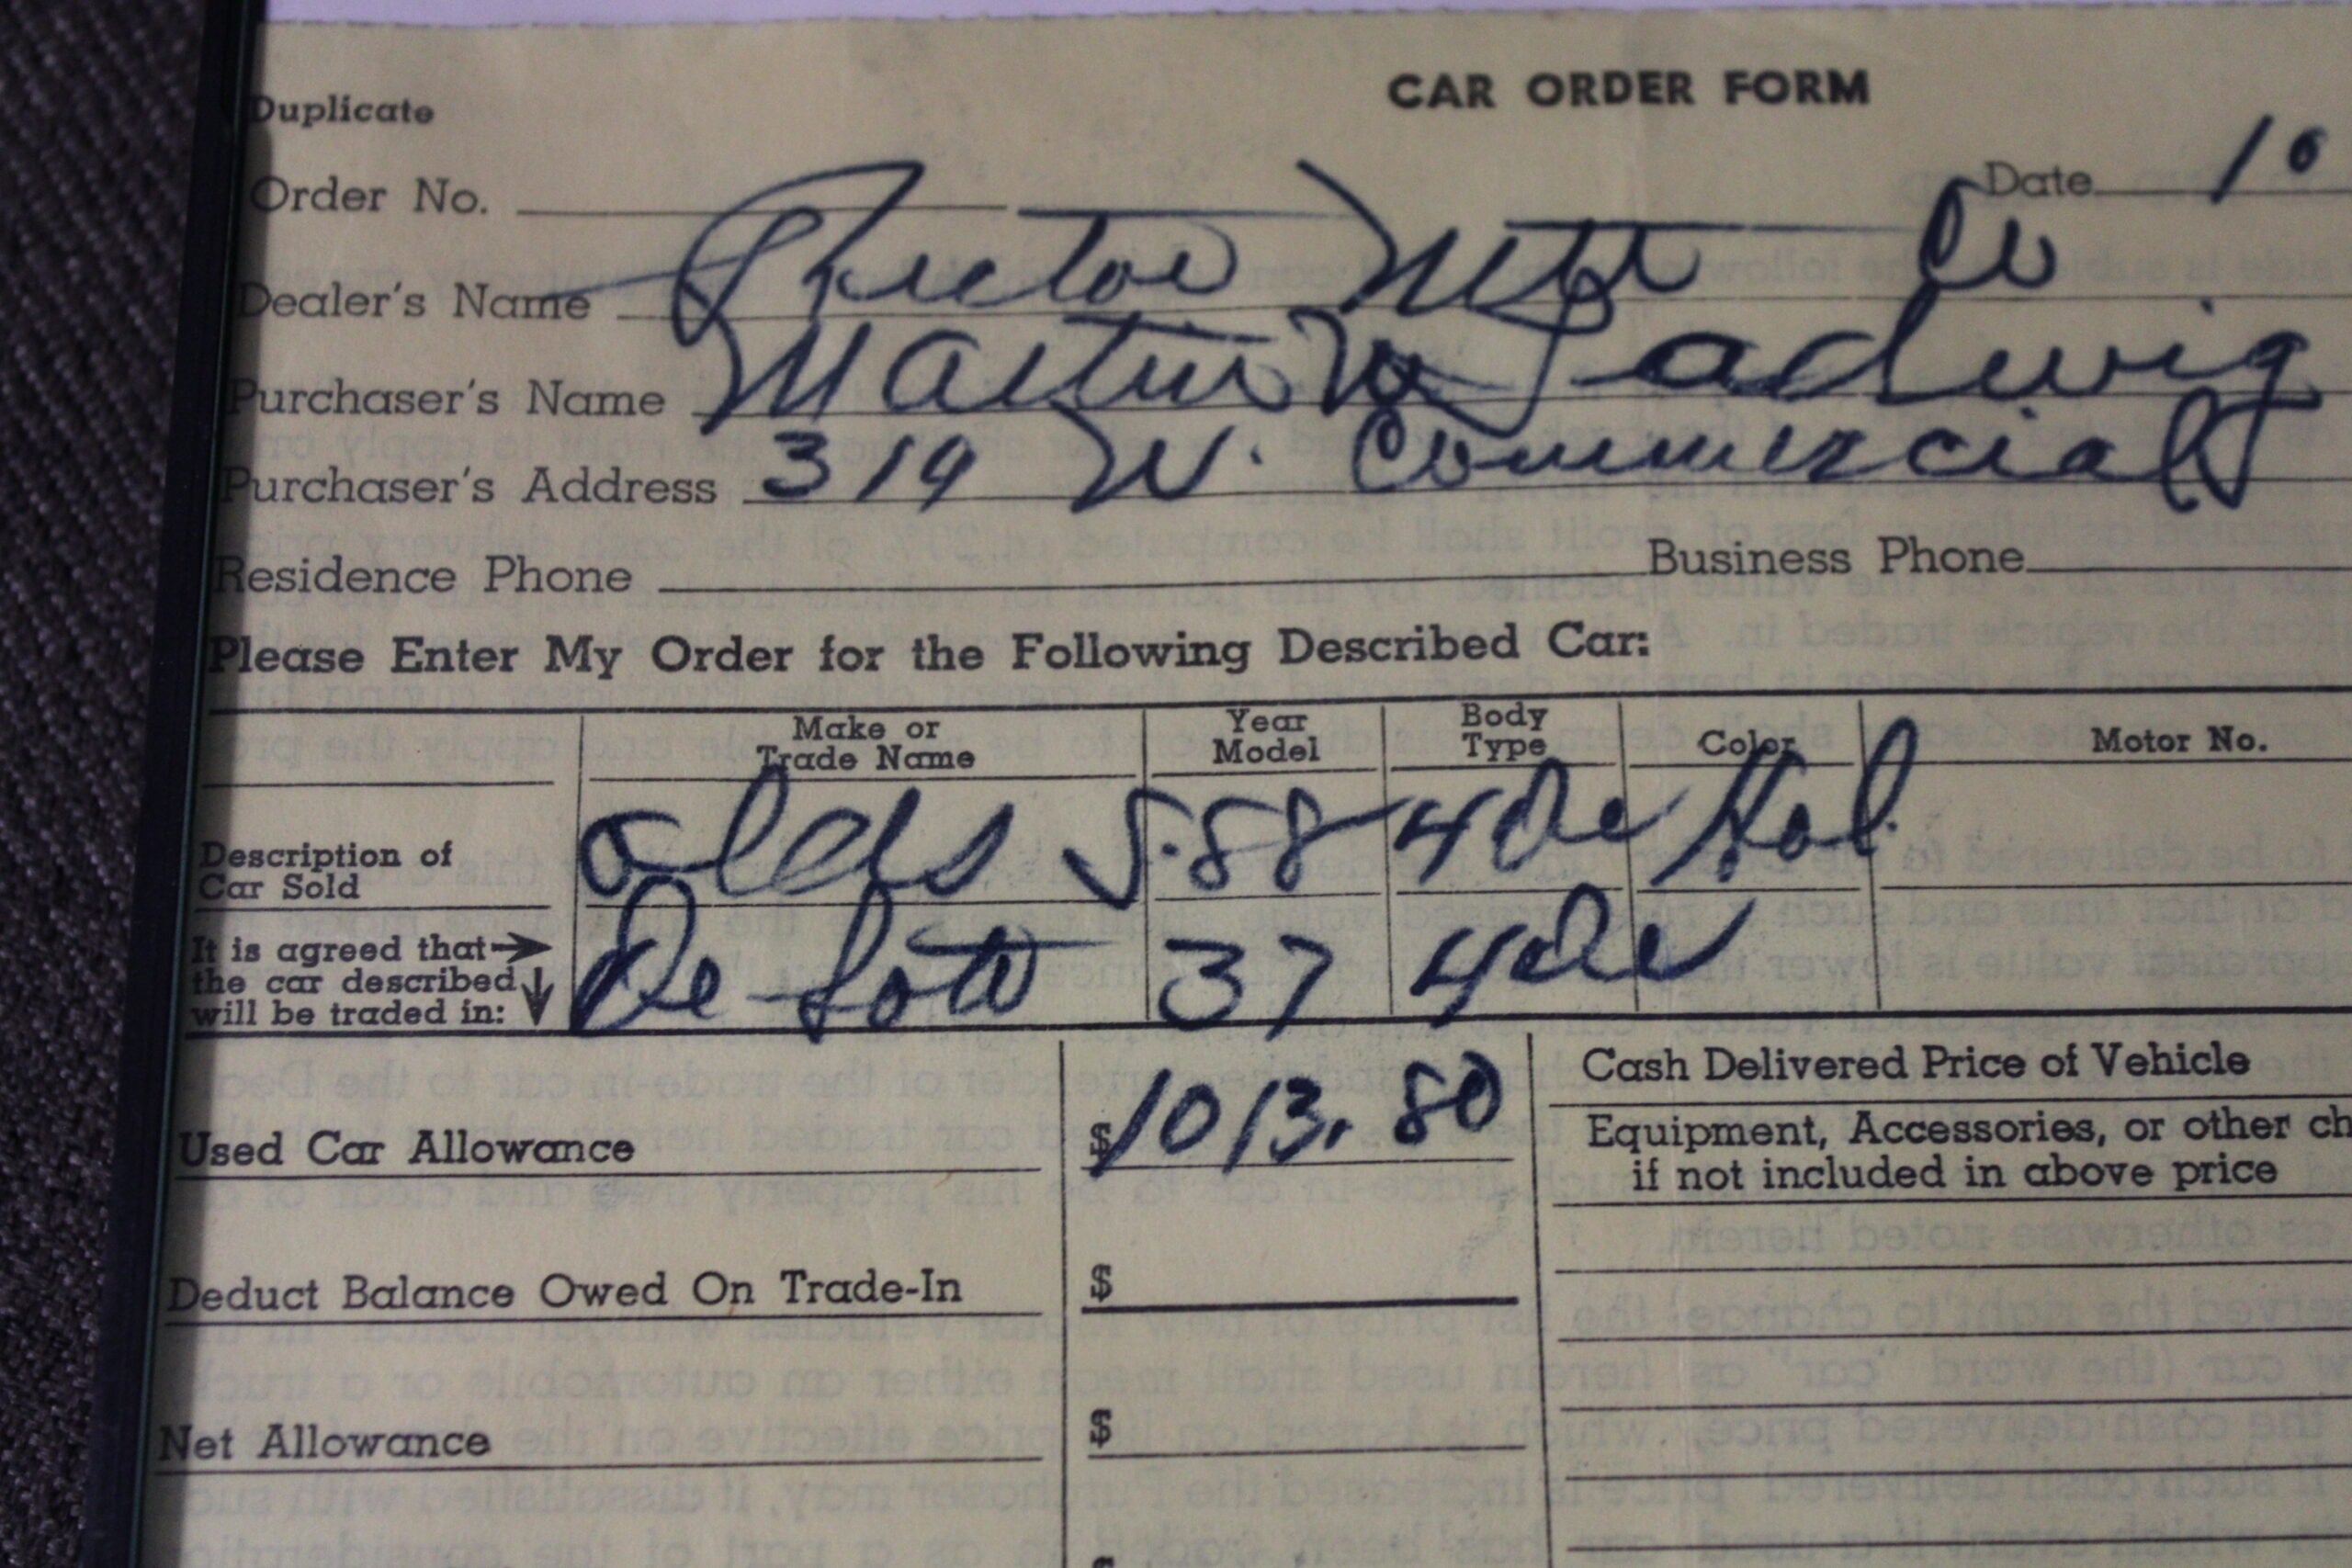 CAR ORDER FORM
Duplicate
Order No. Date 10
Dealer's Name Rector Mtr Co
Purchaser's Name Martin W Ladwig
Purchaser's Address 319 W. Commercial
Residence Phone Business Phone
Please Enter My Order for the Following Described Car:
Make or Trade Name Year Model Body Type Color Motor No.
Description of Car Sold Olds S-88 4 Dr Hol.
It is agreed that → the car described ↓ will be traded in: De Soto 37 4 Dr
Used Car Allowance $1013.80 Cash Delivered Price of Vehicle
Equipment, Accessories, or other ch
if not included in above price
Deduct Balance Owed On Trade-In $
Net Allowance $